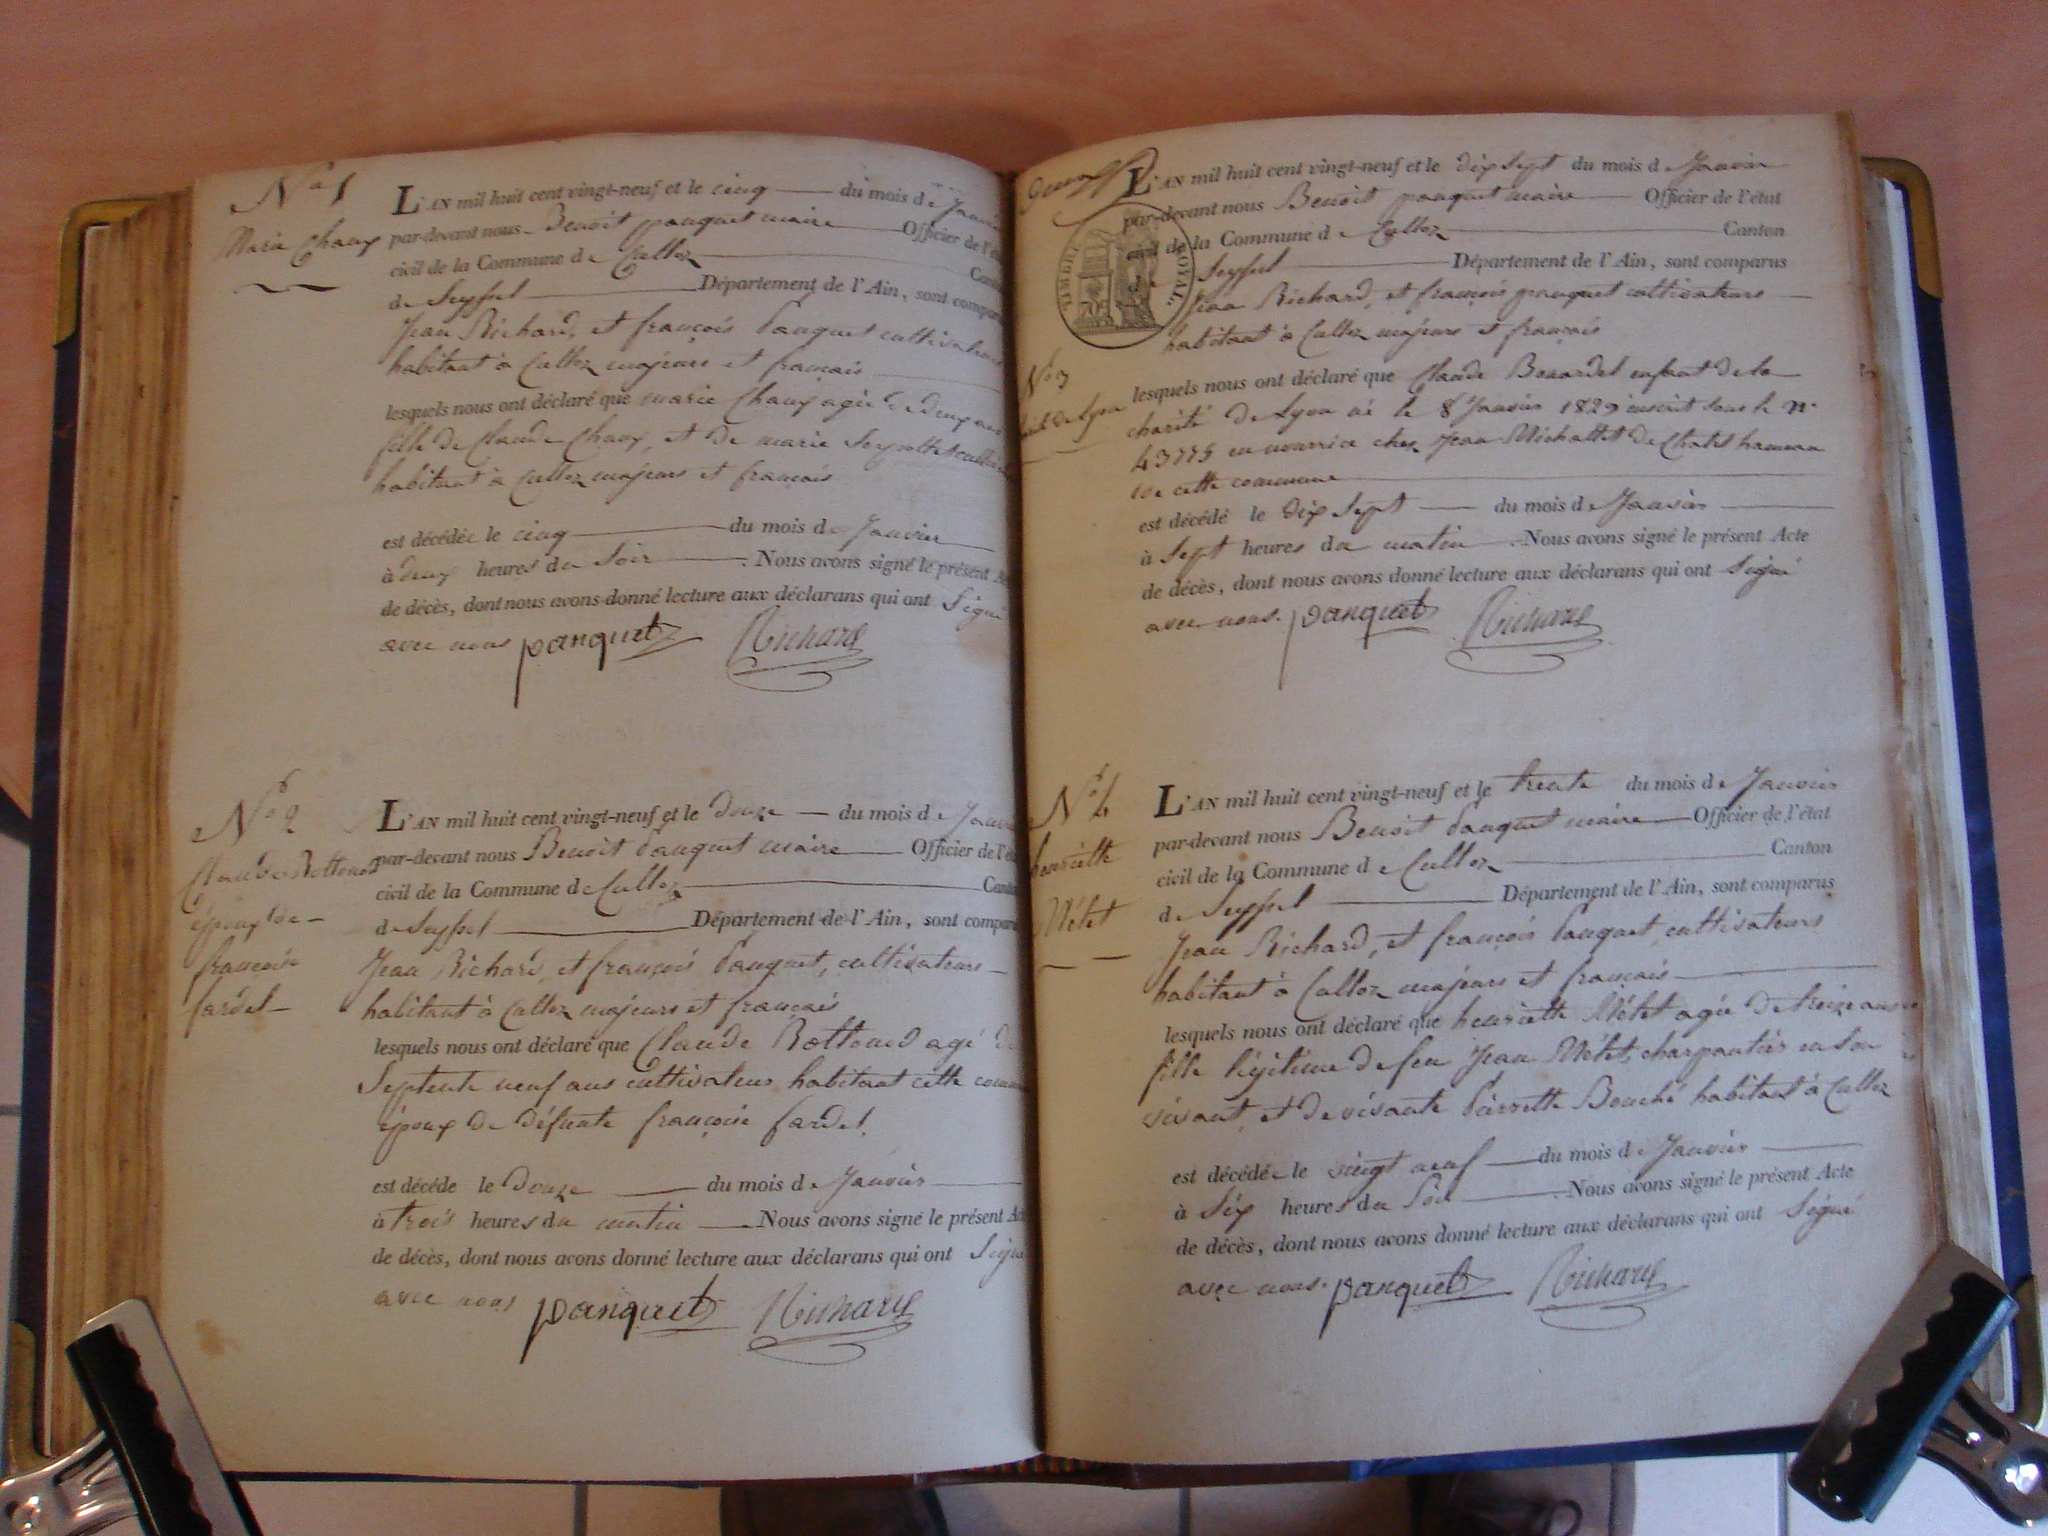 N° 1
Marie Chaux
L'AN mil huit cent vingt-neuf et le cinq du mois de Janvier
par-devant nous Benoit panquet maire Officier de l'état
civil de la Commune de Culloz Canton
de Seyssel Département de l'Ain, sont comparus
Jean Richard, et françois Panquet cultivateurs
habitant à Culloz majeurs et français
lesquels nous ont déclaré que marie Chaux agée de deux ans
fille de Claude Chaux, et de marie
habitant à Culloz majeurs et français
est décédée le cinq du mois de Janvier
à deux heures du Soir . Nous avons signé le présent Acte
de décès, dont nous avons donné lecture aux déclarans qui ont Signé
avec nous panquet Richard
N° 2
Claude Rottoud
époux de
françoise
fardel
L'AN mil huit cent vingt-neuf et le Douze du mois de Janvier
par-devant nous Benoit Panquet maire Officier de l'état
civil de la Commune de Culloz Canton
de Seyssel Département de l'Ain, sont comparus
Jean Richard, et françois Panquet, cultivateurs
habitant à Culloz majeurs et français
lesquels nous ont déclaré que Claude Rottoud agé de
Septente neuf ans cultivateur habitant cette commune
époux de défunte françoise fardel.
est décédé le Douze du mois de Janvier
à trois heures du matin . Nous avons signé le présent Acte
de décès, dont nous avons donné lecture aux déclarans qui ont Signé
avec nous panquet Richard
L'AN mil huit cent vingt-neuf et le dix Sept du mois de Janvier
par-devant nous Benoit panquet maire Officier de l'état
civil de la Commune de Culloz Canton
de Seyssel Département de l'Ain, sont comparus
TIMBRE ROYAL
Jean Richard, et françois panquet cultivateurs
habitant à Culloz majeurs et français
N° 3
de Lyon
lesquels nous ont déclaré que Claude Bonardel enfant de la
charité de Lyon né le 8 Janvier 1829 inscrit sous le n°
43775 en nourrice chez Jean Michallet de Chatel hameau
de cette commune
est décédé le dix Sept du mois de Janvier
à Sept heures du matin . Nous avons signé le présent Acte
de décès, dont nous avons donné lecture aux déclarans qui ont Signé
avec nous. panquet Richard
N° 4
henriette
Métet
L'AN mil huit cent vingt-neuf et le trente du mois de Janvier
par-devant nous Benoit Panquet maire Officier de l'état
civil de la Commune de Culloz Canton
de Seyssel Département de l'Ain, sont comparus
Jean Richard, et françois Panquet, cultivateurs
habitant à Culloz majeurs et français
lesquels nous ont déclaré que henriette Métet agée de treize ans
fille légitime de feu Jean Métet, charpentier en son
vivant, et de vivante Pierrette Bouché habitant à Culloz
est décédée le vingt neuf du mois de Janvier
à Six heures du Soir . Nous avons signé le présent Acte
de décès, dont nous avons donné lecture aux déclarans qui ont Signé
avec nous. panquet Richard